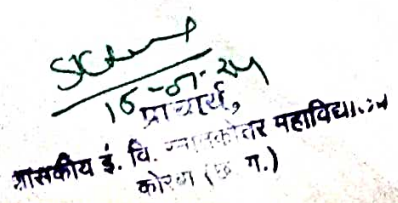 16-07-24
प्राचार्य,
शासकीय इं. वि. स्नातकोत्तर महाविद्यालय
कोरबा (छ. ग.)